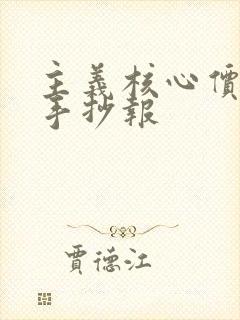 主義核心價
手抄報
賈德江